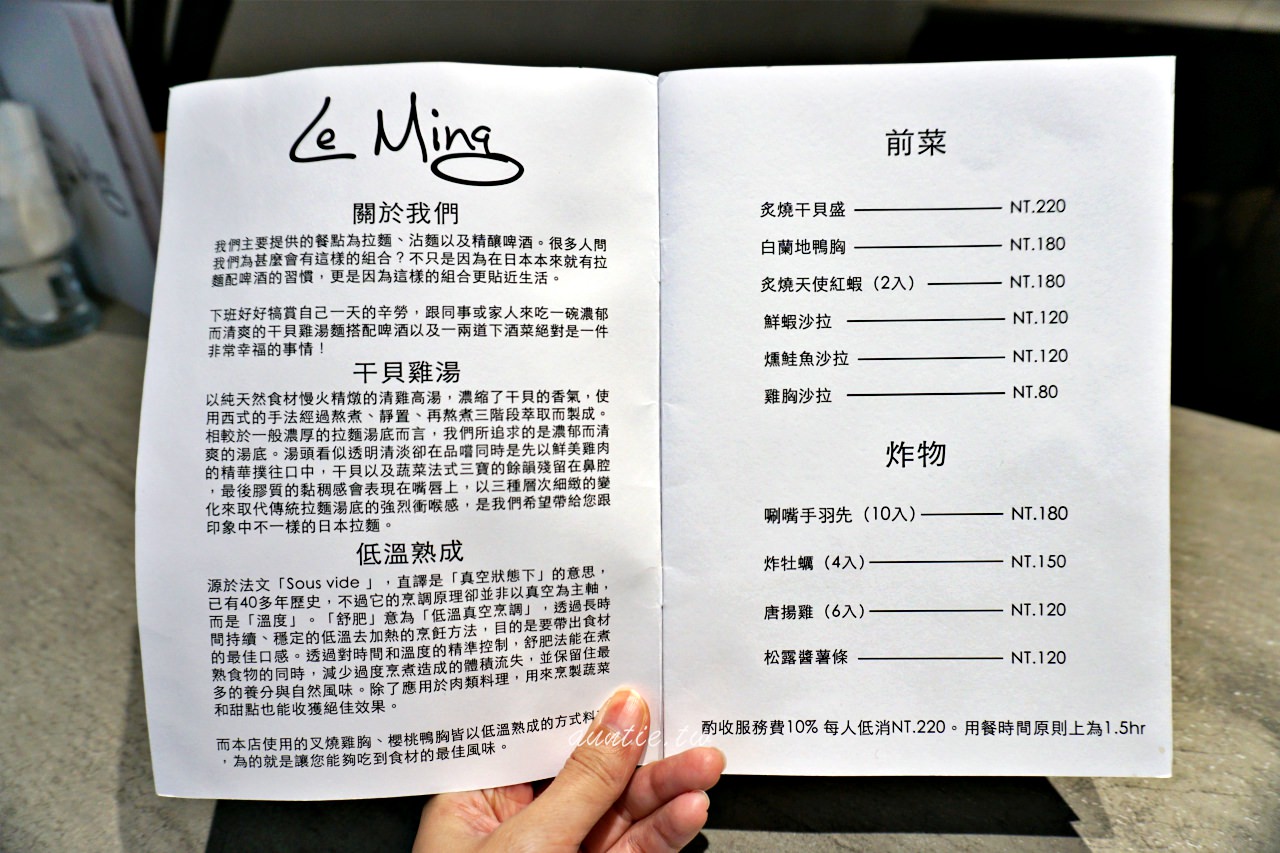 Le Ming
關於我們
我們主要提供的餐點為拉麵、沾麵以及精釀啤酒。很多人問
我們為甚麼會有這樣的組合？不只是因為在日本本來就有拉
麵配啤酒的習慣，更是因為這樣的組合更貼近生活。
下班好好犒賞自己一天的辛勞，跟同事或家人來吃一碗濃郁
而清爽的干貝雞湯麵搭配啤酒以及一兩道下酒菜絕對是一件
非常幸福的事情！
干貝雞湯
以純天然食材慢火精燉的清雞高湯，濃縮了干貝的香氣，使
用西式的手法經過熬煮、靜置、再熬煮三階段萃取而製成。
相較於一般濃厚的拉麵湯底而言，我們所追求的是濃郁而清
爽的湯底。湯頭看似透明清淡卻在品嚐同時是先以鮮美雞肉
的精華撲往口中，干貝以及蔬菜法式三寶的餘韻殘留在鼻腔
，最後膠質的黏稠感會表現在嘴唇上，以三種層次細緻的變
化來取代傳統拉麵湯底的強烈衝喉感，是我們希望帶給您跟
印象中不一樣的日本拉麵。
低溫熟成
源於法文「Sous vide 」，直譯是「真空狀態下」的意思，
已有40多年歷史，不過它的烹調原理卻並非以真空為主軸，
而是「溫度」。「舒肥」意為「低溫真空烹調」，透過長時
間持續、穩定的低溫去加熱的烹飪方法，目的是要帶出食材
的最佳口感。透過對時間和溫度的精準控制，舒肥法能在煮
熟食物的同時，減少過度烹煮造成的體積流失，並保留住最
多的養分與自然風味。除了應用於肉類料理，用來烹製蔬菜
和甜點也能收獲絕佳效果。
而本店使用的叉燒雞胸、櫻桃鴨胸皆以低溫熟成的方式料
，為的就是讓您能夠吃到食材的最佳風味。
前菜
炙燒干貝盛 NT.220
白蘭地鴨胸 NT.180
炙燒天使紅蝦（2入） NT.180
鮮蝦沙拉 NT.120
燻鮭魚沙拉 NT.120
雞胸沙拉 NT.80
炸物
唰嘴手羽先（10入） NT.180
炸牡蠣（4入） NT.150
唐揚雞（6入） NT.120
松露醬薯條 NT.120
酌收服務費10% 每人低消NT.220。用餐時間原則上為1.5hr
auntie.tw